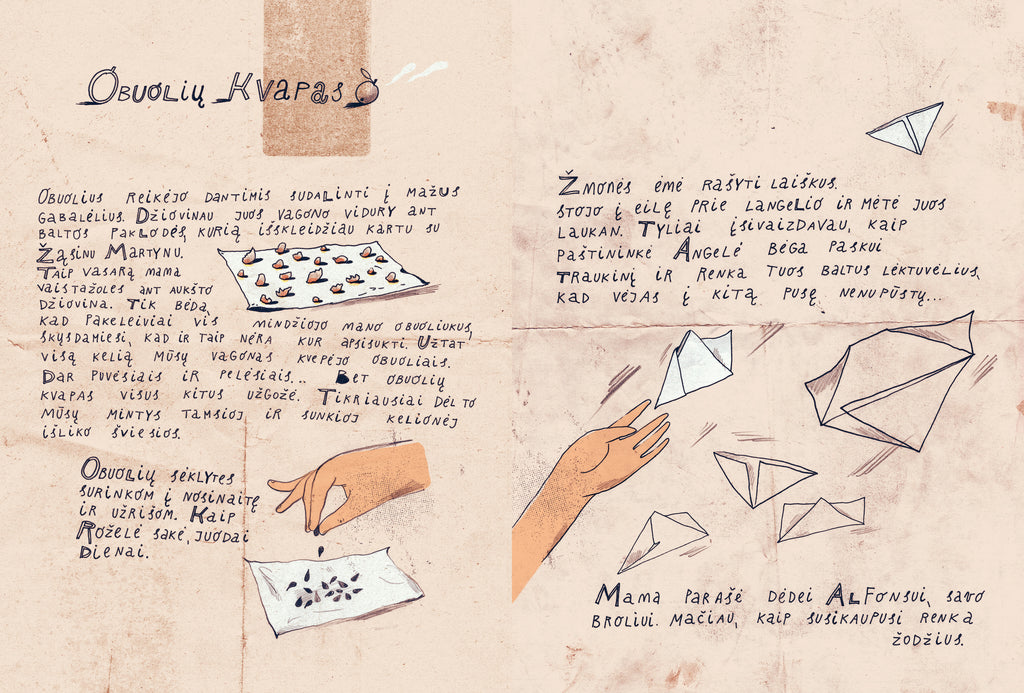 Obuolių Kvapas
Obuolius reikėjo dantimis sudalinti į mažus
gabalėlius. Džiovinau juos vagono vidury ant
baltos paklodės, kurią išskleidžiau kartu su
Žąsinu Martynu.
Taip vasarą mama
vaistažoles ant aukšto
džiovina. Tik bėda,
kad pakeleiviai vis mindžiojo mano obuoliukus,
skųsdamiesi, kad ir taip nėra kur apsisukti. Užtat
visą kelią mūsų vagonas kvepėjo obuoliais.
Dar puvėsiais ir pelėsiais... Bet obuolių
kvapas visus kitus užgožė. Tikriausiai dėl to
mūsų mintys tamsioj ir sunkioj kelionėj
išliko šviesios.
Obuolių sėklytes
surinkom į nosinaitę
ir užrišom. Kaip
Roželė sakė, juodai
dienai.
Žmonės ėmė rašyti laiškus.
Stojo į eilę prie langelio ir mėtė juos
laukan. Tyliai įsivaizdavau, kaip
paštininkė Angelė bėga paskui
traukinį ir renka tuos baltus lėktuvėlius,
kad vėjas į kitą pusę nenupūstų...
Mama parašė dėdei Alfonsui, savo
broliui. Mačiau, kaip susikaupusi renka
žodžius.